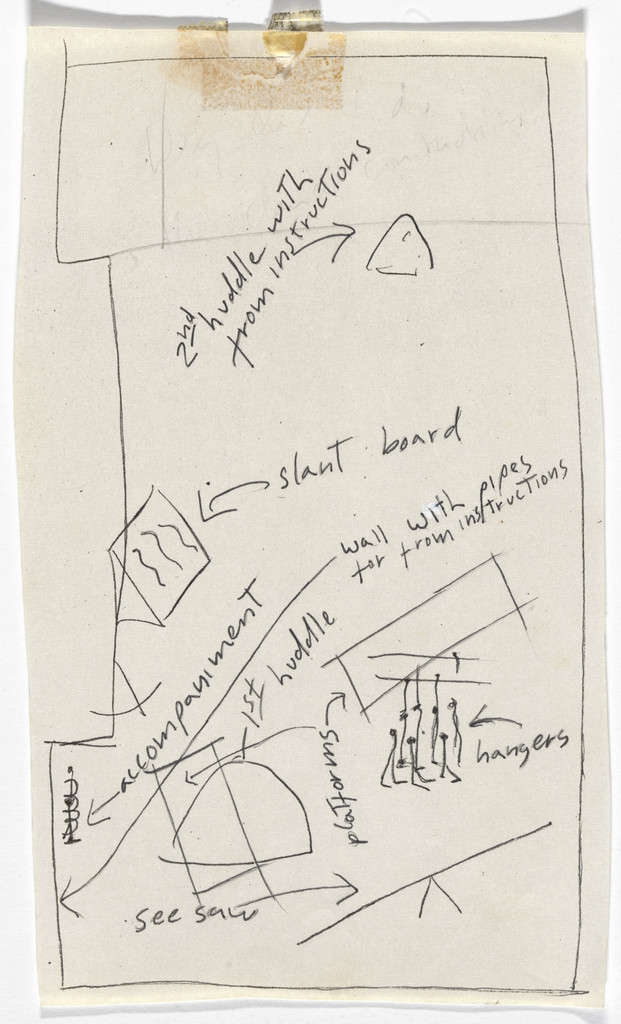 2nd huddle with
from instructions
slant board
wall with pipes
for from instructions
accompaniment
1st huddle
platforms
hangers
see saw